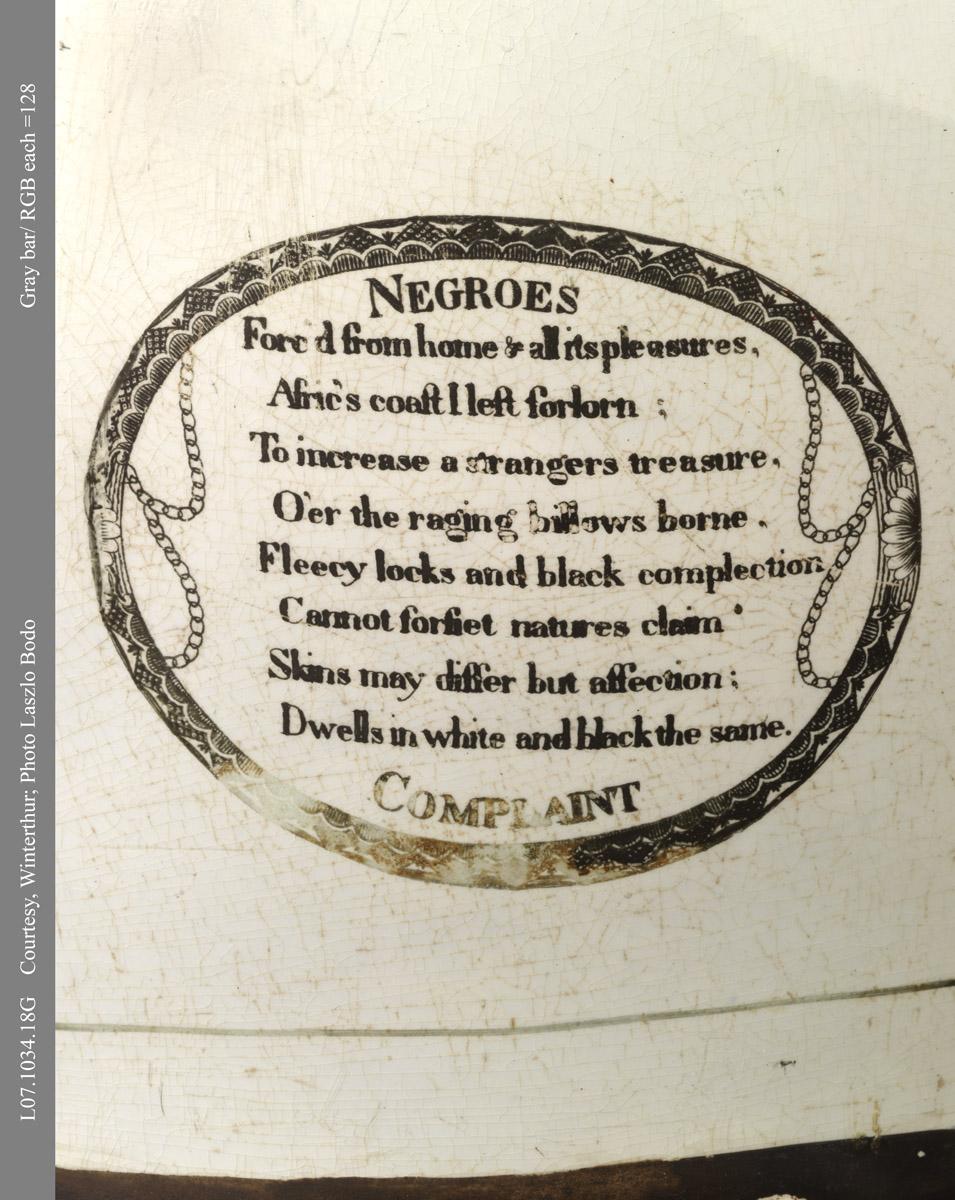 NEGROES
Forc'd from home & all its pleasures,
Afric's coaſt I left forlorn ;
To increase a strangers treasure,
O'er the raging billows borne .
Fleecy locks and black complection
Cannot forfiet natures claim
Skins may differ but affection ;
Dwells in white and black the same.
COMPLAINT
L07.1034.18G Courtesy, Winterthur; Photo Laszlo Bodo Gray bar/ RGB each =128